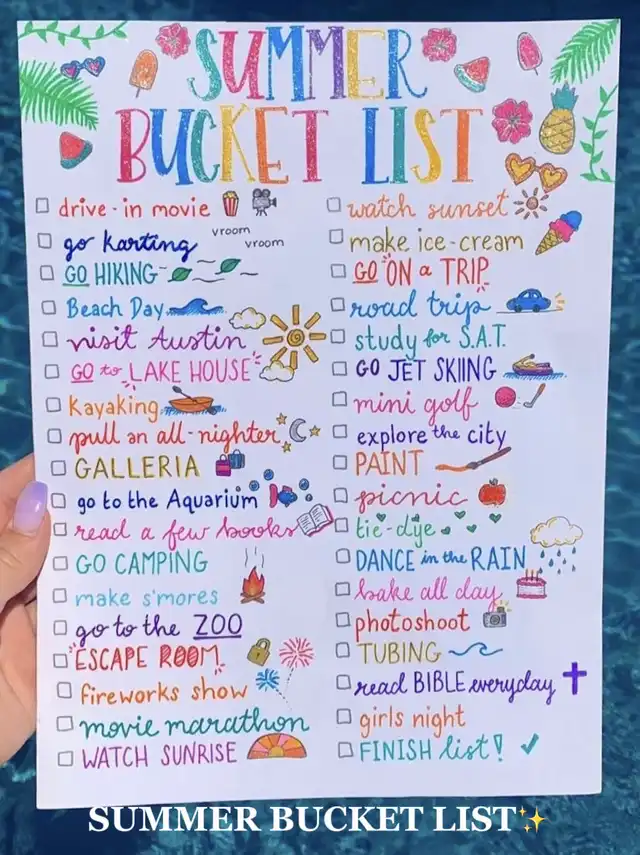 SUMMER
BUCKET LIST
drive-in movie
go karting vroom vroom
GO HIKING
Beach Day
visit Austin
GO to LAKE HOUSE
Kayaking
pull an all-nighter
GALLERIA
go to the Aquarium
read a few books
GO CAMPING
make s'mores
go to the ZOO
ESCAPE ROOM
fireworks show
movie marathon
WATCH SUNRISE
watch sunset
make ice-cream
GO ON a TRIP
road trip
study for S.A.T.
GO JET SKIING
mini golf
explore the city
PAINT
picnic
tie-dye
DANCE in the RAIN
bake all day
photoshoot
TUBING
read BIBLE everyday
girls night
FINISH list!
SUMMER BUCKET LIST✨